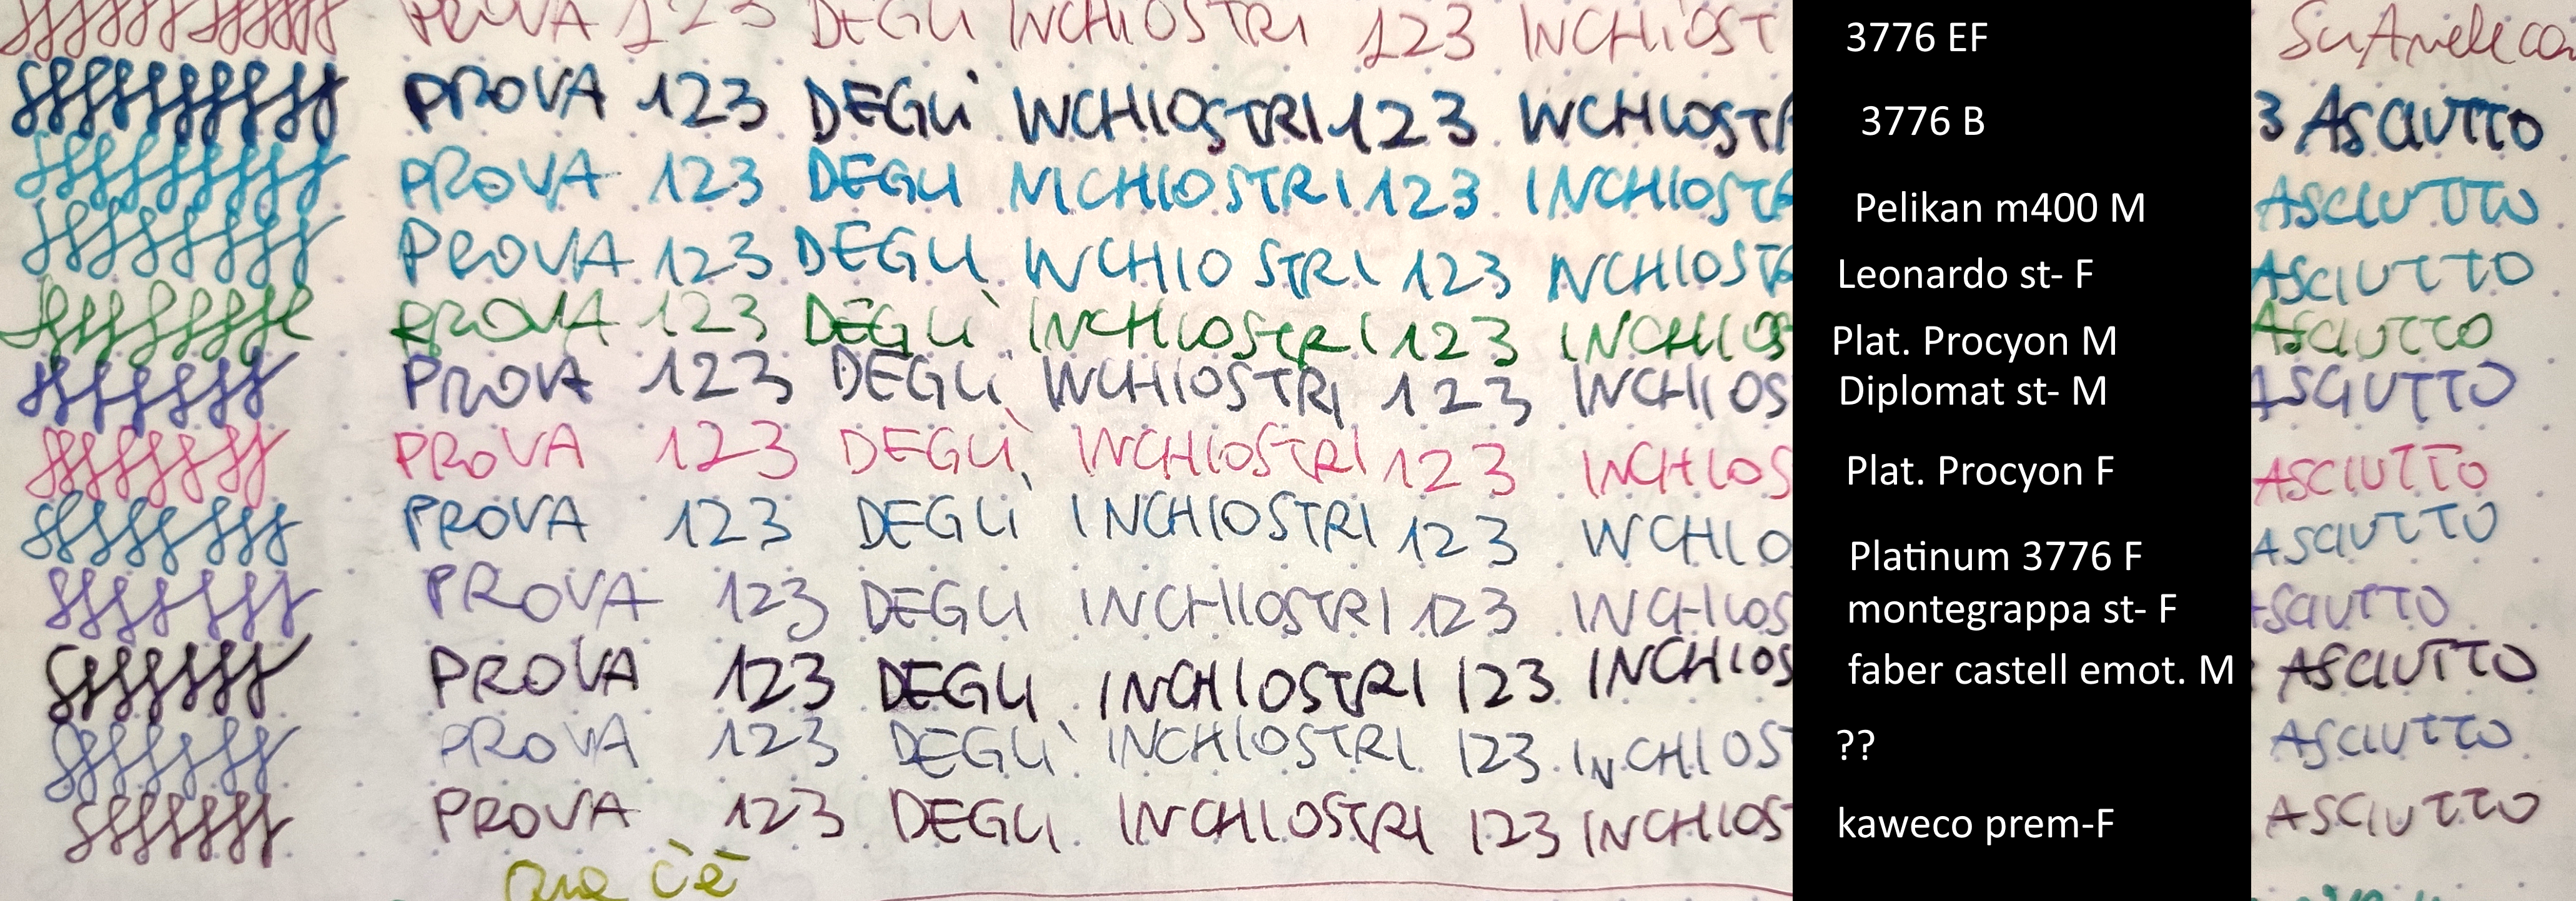 PROVA 123 DEGLI INCHIOSTRI 123 INCHIOST 3776 EF
PROVA 123 DEGLì INCHIOSTRI 123 INCHIOSTR 3776 B 3 ASCIUTTO
PROVA 123 DEGLI INCHIOSTRI 123 INCHIOSTR Pelikan m400 M ASCIUTTO
PROVA 123 DEGLI INCHIOSTRI 123 INCHIOSTR Leonardo st- F ASCIUTTO
PROVA 123 DEGLì INCHIOSTRI 123 INCHIOS Plat. Procyon M ASCIUTTO
PROVA 123 DEGLi INCHIOSTRI 123 INCHIOS Diplomat st- M ASCIUTTO
PROVA 123 DEGLì INCHIOSTRI 123 INCHIOS Plat. Procyon F ASCIUTTO
PROVA 123 DEGLì INCHIOSTRI 123 INCHIO Platinum 3776 F ASCIUTTO
PROVA 123 DEGLI INCHIOSTRI 123 INCHIOS montegrappa st- F ASCIUTTO
PROVA 123 DEGLI INCHIOSTRI 123 INCHIOS faber castell emot. M ASCIUTTO
PROVA 123 DEGLì INCHIOSTRI 123 INCHIOST ?? ASCIUTTO
PROVA 123 DEGLI INCHIOSTRI 123 INCHIOST kaweco prem-F ASCIUTTO
Qua c'è